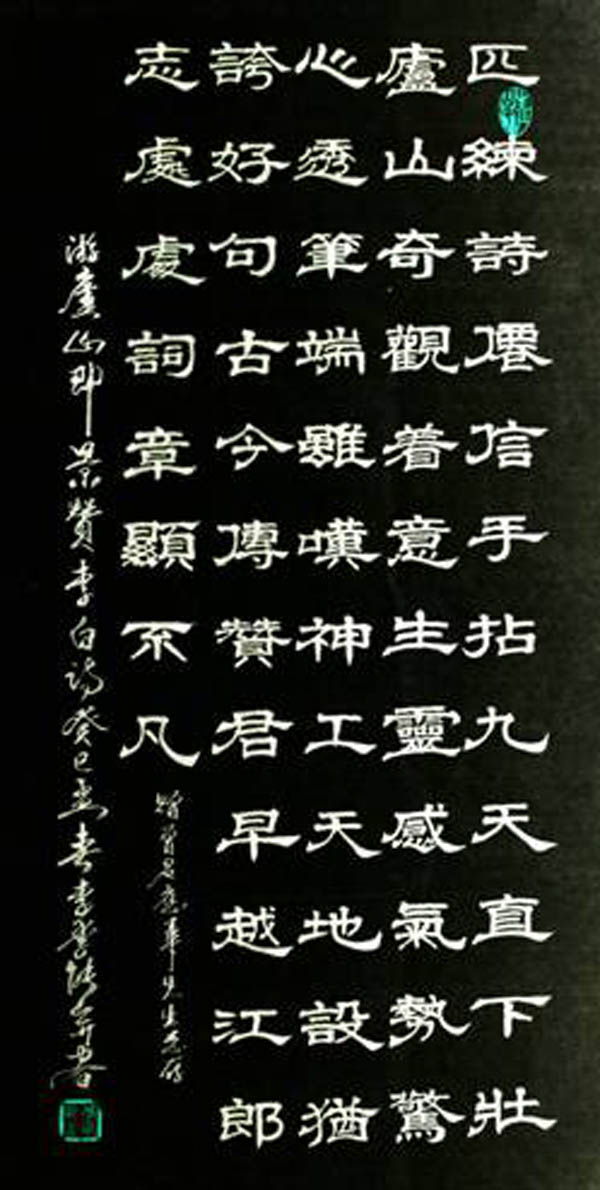 匹練詩僊信手拈九天直下壯
廬山奇觀着意生靈感氣勢驚
心透筆端雖嘆神工天地設猶
誇好句古今傳贊君早越江郎
志處處詞章顯不凡
先生
游廬山即景贊李白詩癸巳春李并書